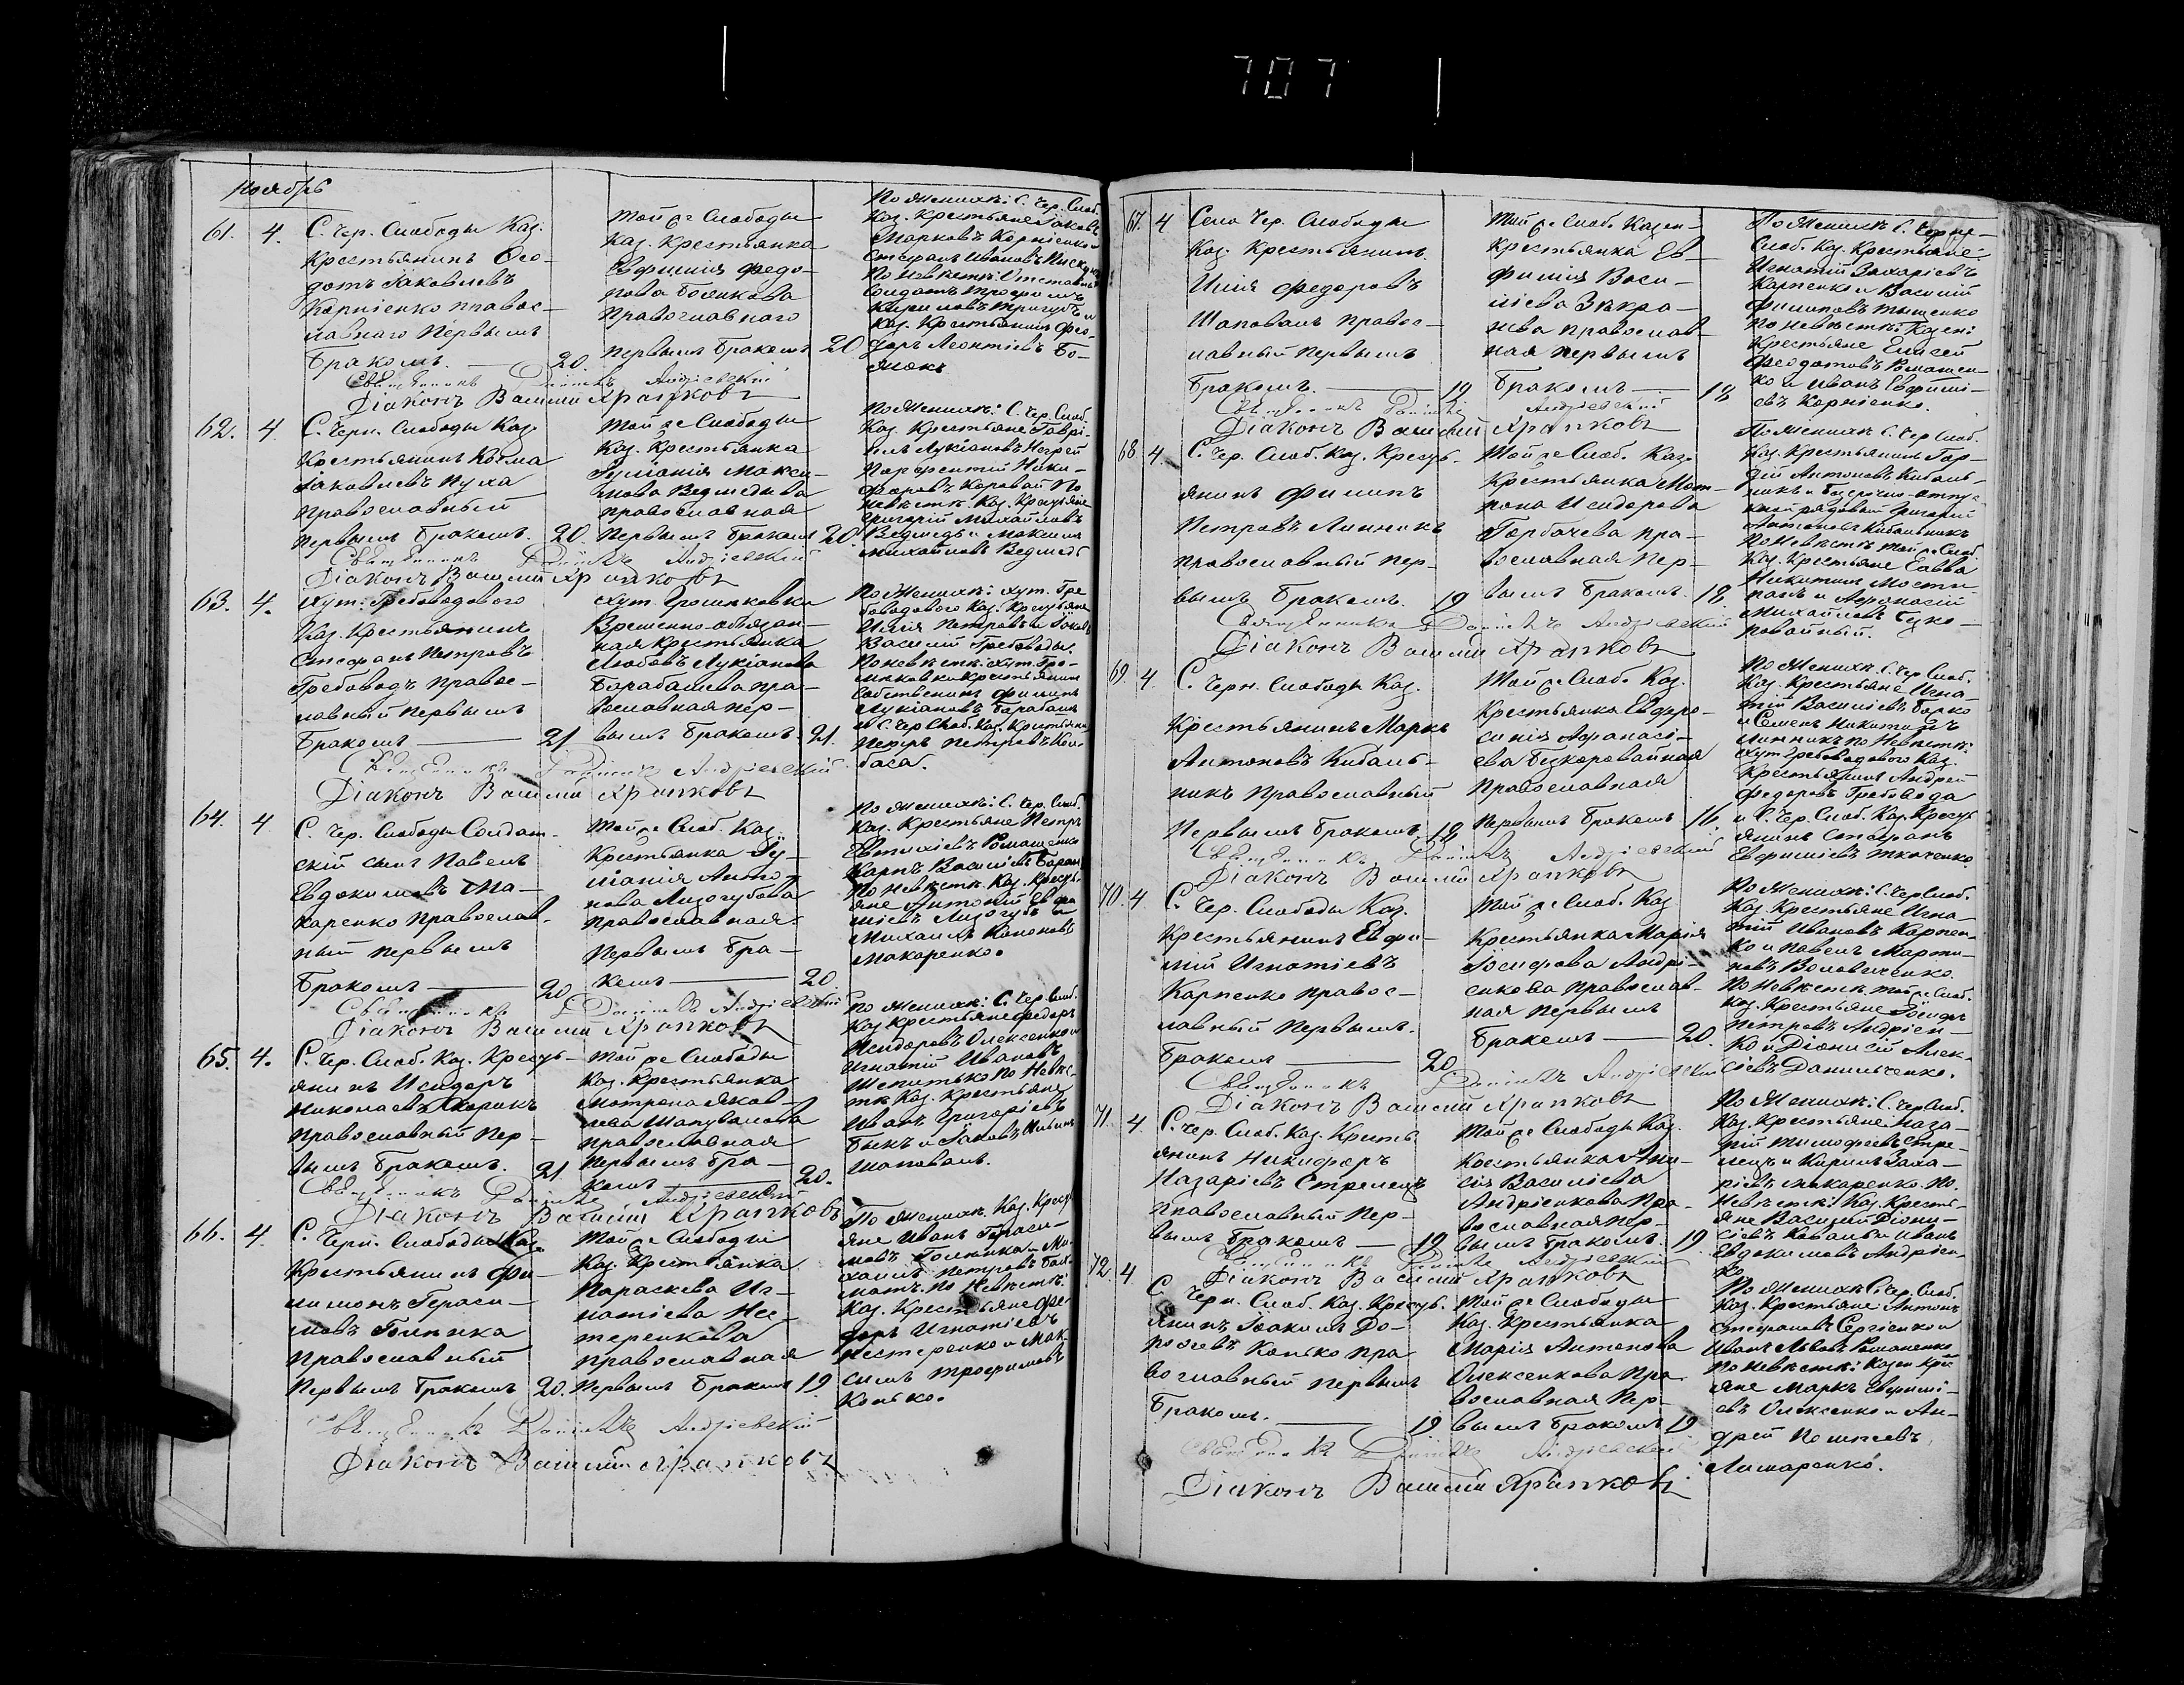 707
Ноябрь
61. 4. С. Чер. Слободы Каз.
Крестьянинъ Ѳео-
дотъ Іаковлевъ
Корніенко правос-
лавнаго Первымъ
Бракомъ. 20.
Той же Слободы
Каз. Крестьянка
Евфимія Федо-
рова Божкова
Православнаго
первымъ Бракомъ 20
По Женихѣ: С. Чер. Слоб.
Каз. Крестьяне Іаковъ
Марковъ Корніенко и
Стефанъ Ивановъ
По Невѣстѣ: Отставный
Солдатъ Трофимъ
Кириловъ Тригубъ и
Каз. Крестьянинъ Фео-
доръ Леонтіевъ Бо-
жокъ
Священникъ Даніилъ Андріевскій
Діаконъ Василій Храпковъ
62. 4. С. Черн. Слободы Каз.
Крестьянинъ Косма
Іаковлевъ Пуха
православный
первымъ Бракомъ. 20.
Той же Слободы
Каз. Крестьянка
Іуліанія Макси-
мова Ведмедева
православная
Первымъ Бракомъ 20.
По Женихѣ: С. Чер. Слоб.
Каз. Крестьяне Гаврі-
илъ Лукіановъ Негрей
Парфентій Ники-
форовъ Коровай По
Невѣстѣ. Каз. Крестьяне
Григорій Михайловъ
Ведмедь и Максимъ
Михайловъ Ведмедь
Священникъ Даніилъ Андріевскій
Діаконъ Василій Храпковъ
63. 4. Хут. Гребоводового
Каз. Крестьянинъ
Стефанъ Петровъ
Гребоводъ Правос-
лавный Первымъ
Бракомъ 21
Хут. Громковки
Временно-обязан-
ная Крестьянка
Любовь Лукіанова
Барабашева пра-
вославная пер-
вымъ Бракомъ. 21.
По Женихѣ: Хут. Гре
боводового Каз. Крестьяне
Илія Петровъ и Іаковъ
Василій Гребоводы.
По невѣстѣ: Хут. Гро-
мковки Крестьянинъ
Собственникъ Филипъ
Лукіановъ Барабашъ
и С. Чер. Слоб. Каз. Крестьянинъ
Петръ Петровъ Кол-
баса.
Священникъ Даніилъ Андріевскій
Діаконъ Василій Храпковъ
64. 4 С. Чер. Слободы Солдат-
скій сынъ Павелъ
Евдокимовъ Ма-
каренко Православ-
ный первымъ
Бракомъ 20
Той же Слоб. Каз.
Крестьянка Іу-
ліанія Анто-
нова Лизогубова
православная
Первымъ Бра-
комъ 20.
По Женихѣ: С. Чер. Слоб.
Каз. Крестьяне Петръ
Евтихіевъ Ромащенко
Карпъ Василіевъ Баранъ
По Невѣстѣ. Каз. Кресть-
яне Антоній Евфи
міевъ Лизогубъ и
Михаилъ Кононовъ
Макаренко.
Священникъ Даніилъ Андріевскій
Діаконъ Василій Храпковъ
65. 4. С. Чер. Слоб. Каз. Кресть-
янинъ Исидоръ
Николаевъ
Православный Пер-
вымъ Бракомъ. 21
Той же Слободы
Каз. Крестьянка
Матрона Яков-
лева Шаповалова
православная
Первымъ Бра-
комъ 20.
По Женихѣ: С. Чер. Слоб.
Каз. Крестьяне Федоръ
Исидоровъ Олексенко и
Игнатій Ивановъ
Шепитько По Невѣс-
тѣ Каз. Крестьяне
Иванъ Григоріевъ
Быкъ и Іаковъ
Шаповалъ.
Священникъ Даніилъ Андріевскій
Діаконъ Василій Храпковъ
66. 4. С. Черн. Слободы Каз.
Крестьянинъ Фи-
лимонъ Гераси-
мовъ Голинка
Православный
Первымъ Бракомъ 20.
Той же Слободы
Каз. Крестьянка
Параскева Иг-
натіева Нес-
теренкова
Православная
Первымъ Бракомъ 19
По Женихѣ. Каз. Кресть
яне Иванъ Гераси-
мовъ Голинка и Ми-
хаилъ Петровъ
По Невѣстѣ:
Каз. Крестьяне Фео-
доръ Игнатіевъ
Нестеренко и Мак-
симъ Трофимовъ
Конько.
Священникъ Даніилъ Андріевскій
Діаконъ Василій Храпковъ
67. 4 Села Чер. Слободы
Каз. Крестьянинъ
Илія Федоровъ
Шаповалъ Правос-
лавный Первымъ
Бракомъ. 19
Той же Слоб. Казен-
Крестьянка Ев-
фимія Васи-
ліева
православ-
ная первымъ
Бракомъ 18
По Женихѣ С. Черне-
Слоб. Каз. Крестьяне:
Игнатій Захаріевъ
Карпенко и Василій
Филиповъ Тищенко
По Невѣстѣ: Казен:
Крестьяне Елисей
Феодотовъ Ромащен-
ко и Иванъ Евфимі-
евъ Корніенко.
Священникъ Даніилъ Андріевскій
Діаконъ Василій Храпковъ
68. 4. С. Чер. Слоб. Каз. Кресть-
янинъ Филипъ
Петровъ Линникъ
православный пер-
вымъ Бракомъ. 19
Той же Слоб. Каз.
Крестьянка Мат-
рона Исидорова
Горбачева Пра-
вославная Пер-
вымъ Бракомъ. 18
По Женихѣ С. Чер. Слоб.
Каз. Крестьянинъ Гор-
дій Антоновъ Кибаль-
никъ и безсрочно-отпу-
кной рядовый Григорій
Антоновъ Кибальникъ
По Невѣстѣ Той же Слоб.
Каз. Крестьяне Савва
Никитинъ Мости-
панъ и Афанасій
Михайловъ Буко-
ровайный.
Священникъ Даніилъ Андріевскій
Діаконъ Василій Храпковъ
69. 4. С. Черн. Слободы Каз.
Крестьянинъ Маркъ
Антоновъ Кибаль-
никъ Православный
Первымъ Бракомъ 18
Той же Слоб. Каз.
Крестьянка Евфро-
синія Афанасі-
ева Букоровайная
Православная
Первымъ Бракомъ 16
По Женихѣ. С. Чер. Слоб.
Каз. Крестьяне Игна-
тій Василіевъ Борко
и Семенъ Никитинъ
Линникъ по Невѣстѣ:
Хут. Гребоводового Каз.
Крестьянинъ Андрей
Федоровъ Гребовода
и С. Чер. Слоб. Каз. Кресть
янинъ Стефанъ
Евфиміевъ Ткаченко
Священникъ Даніилъ Андріевскій
Діаконъ Василій Храпковъ
70. 4 С. Чер. Слободы Каз.
Крестьянинъ Евфи-
мій Игнатіевъ
Карпенко правос-
лавный Первымъ.
Бракомъ 20
Той же Слоб. Каз
Крестьянка Марія
Іосифова Андрі-
енкова Православ-
ная первымъ
Бракомъ 20.
По Женихѣ: С. Чер. Слоб.
Каз. Крестьяне Игна-
тій Ивановъ Карпен-
ко и Павелъ Марти-
новъ Воловиченко.
По Невѣстѣ Той же Слоб.
Каз. Крестьяне Іосифъ
Петровъ Андріен-
ко и Діонисій Алек-
сіевъ Данильченко.
Священникъ Даніилъ Андріевскій
Діаконъ Василій Храпковъ
71. 4. С. Чер. Слоб. Каз. Кресть
янинъ Никифоръ
Назаріевъ Стрелецъ
Православный Пер-
вымъ Бракомъ 19
Той же Слободы Каз.
Крестьянка Ани-
сія Василіева
Андріенкова Пра-
вославная Пер-
вымъ Бракомъ. 19
По Женихѣ: С. Чер. Слоб.
Каз. Крестьяне Наза-
рій Тимофеевъ Стре-
лецъ и Кирилъ Заха-
ріевъ Макаренко. По.
Невѣстѣ: Каз. Кресть-
яне Василій Діони-
сіевъ Коваль и Иванъ
Евдокимовъ Андріен-
ко
Священникъ Даніилъ Андріевскій
Діаконъ Василій Храпковъ
72. 4 С. Черн. Слоб. Каз. Кресть.
янинъ Іоакимъ До-
роѳеевъ Конько пра
вославный первымъ
Бракомъ. 19
Той же Слободы
Каз. Крестьянка
Марія Антонова
Олексенкова Пра
вославная Пер-
вымъ Бракомъ 19
По Женихѣ С. Чер. Слоб.
Каз. Крестьяне Антонъ
Стефановъ Сергіенко и
Иванъ Львовъ Романенко
По Невѣстѣ: Казен Крес
яне Маркъ Евфимі-
евъ Олексенко и Ан-
дрей
Лимаренко.
Священникъ Даніилъ Андріевскій
Діаконъ Василій Храпковъ